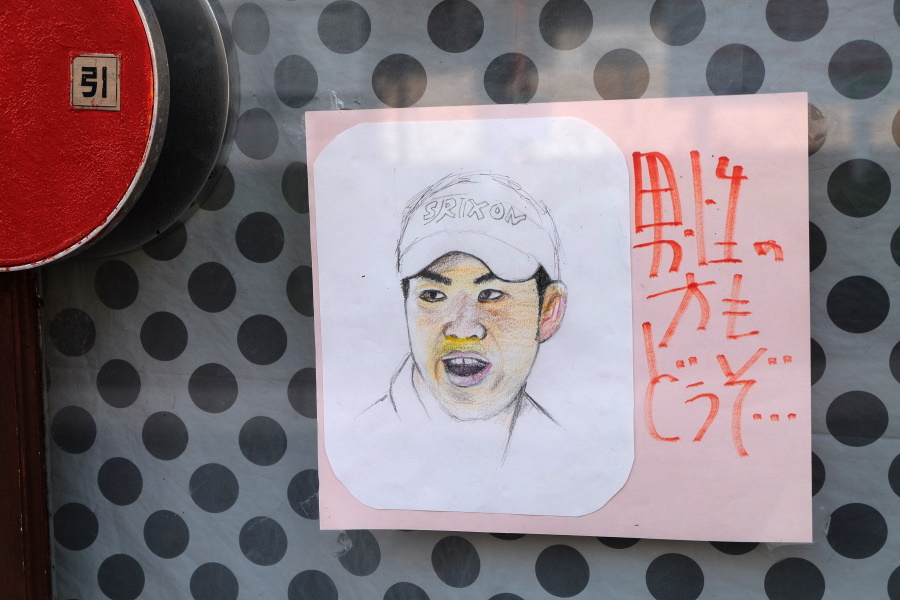 引
SRIXON
男性の
方も
どうぞ…